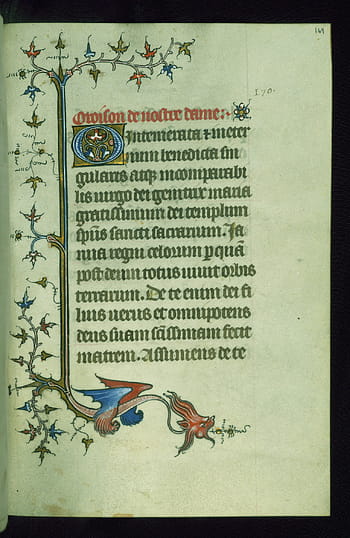 169
170.
Oroison de nostre dame:
O Intemerata ⁊ in eter
num benedicta sin
gularis atqꝫ incomparabi
lis uirgo dei genitrix maria
gratissimum dei templum
spūs sancti sacrarium. Ja
nua regni celorum ꝑ quā
post deum totus uiuit orbis
terrarum. De te enim dei fi
lius uerus et omnipotens
deus suam sāssimam fecit
matrem. Assumens de te